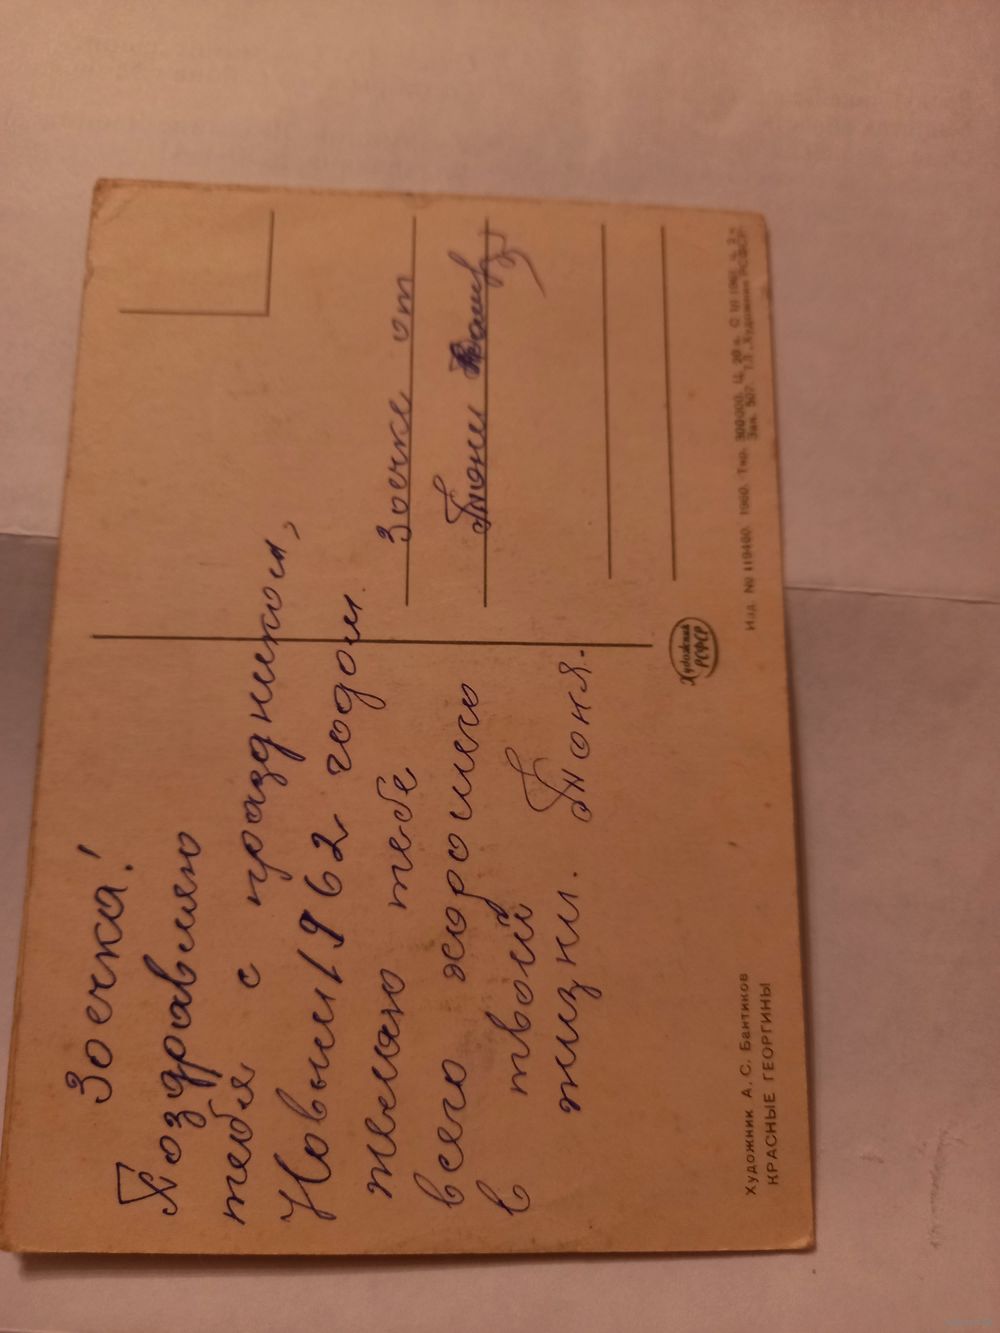 Зоечка!
Поздравляю
тебя с праздником,
Новым 1962 годом.
желаю тебе
всего хорошего
в твоей
жизни. Тоня.
Зоечке от
Тони
Художник А. С. Бантиков
КРАСНЫЕ ГЕОРГИНЫ
Художник
РСФСР
Изд. № 119460. 1960. Тир. 300000. Ц. 20 к.
Зак. 507.